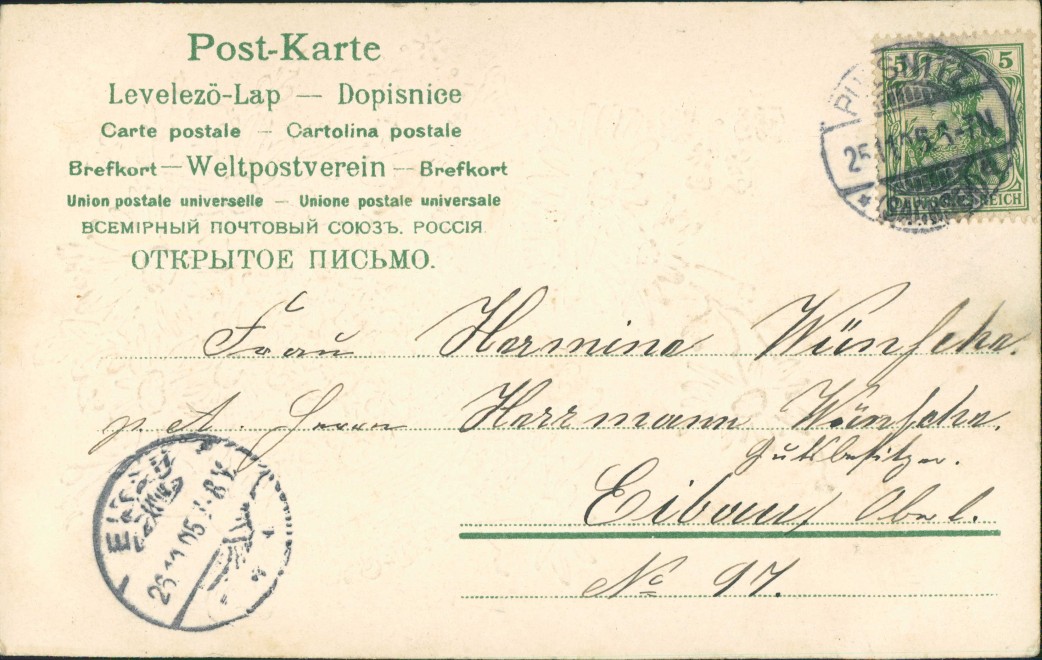 Post-Karte
Levelezö-Lap — Dopisnice
Carte postale – Cartolina postale
Brefkort — Weltpostverein — Brefkort
Union postale universelle – Unione postale universale
ВСЕМІРНЫЙ ПОЧТОВЫЙ СОЮЗЪ. РОССІЯ
ОТКРЫТОЕ ПИСЬМО.
5 5
REICH
PULSNITZ
25.11.05. 1-7N.
Frau Hermine Wünsche.
p. A. Herrn Herrmann Wünsche.
Gutsbesitzer.
Eibau Oberl.
No 97.
EIBAU
26.11.05. 7-8V.